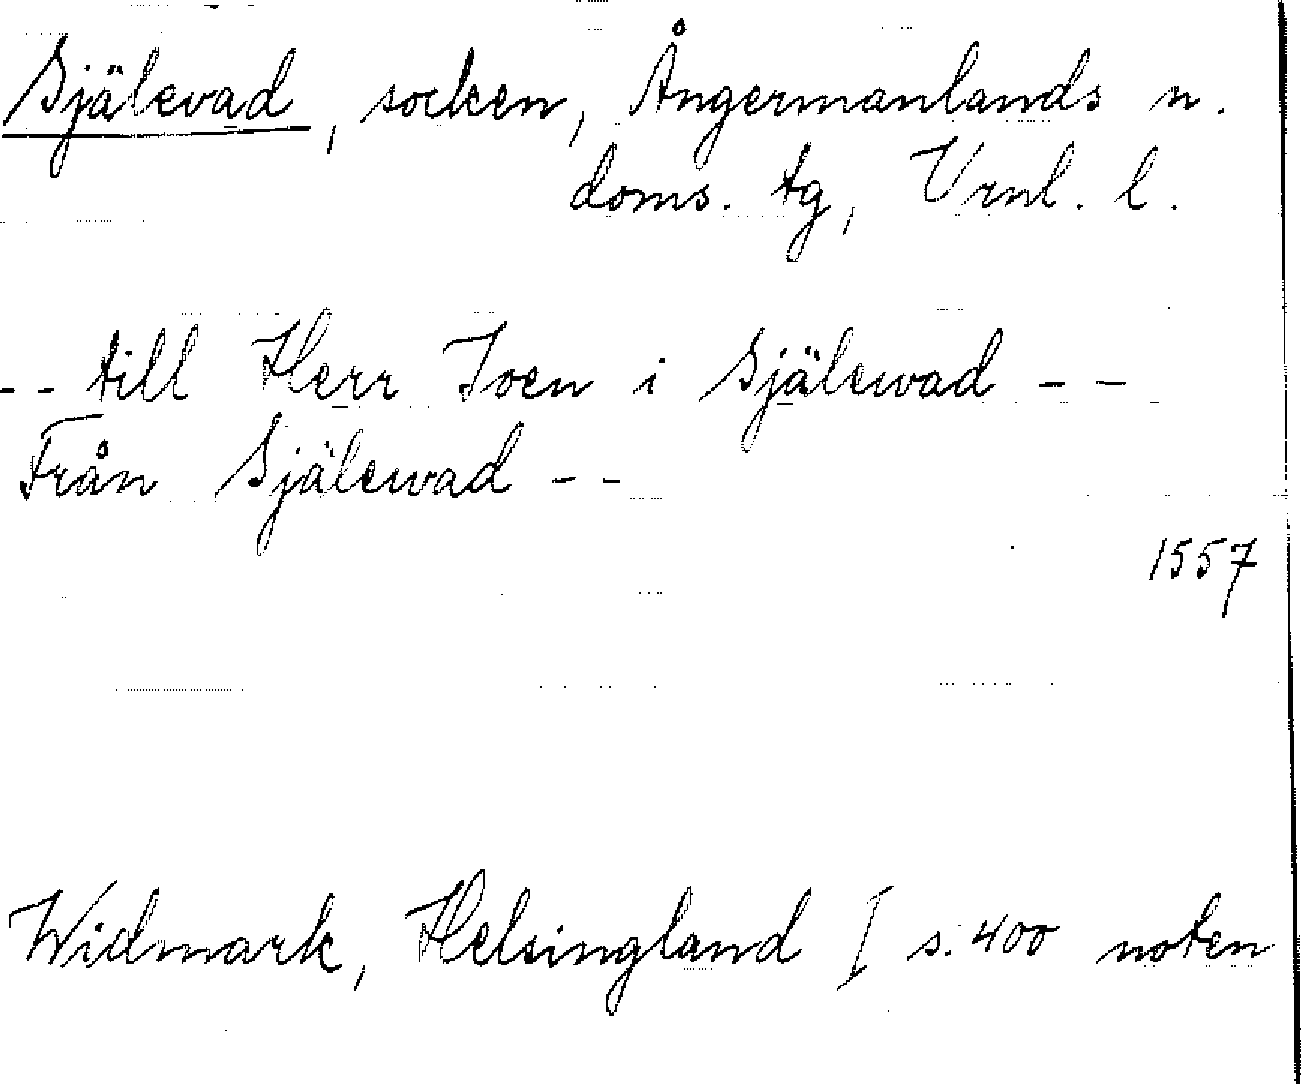 Själevad, socken, Ångermanlands n.
doms. tg, Vrnl. l.
-- till Herr Joen i Själewad --
Från Själewad --
1557
Widmark, Helsingland I s. 400 noten